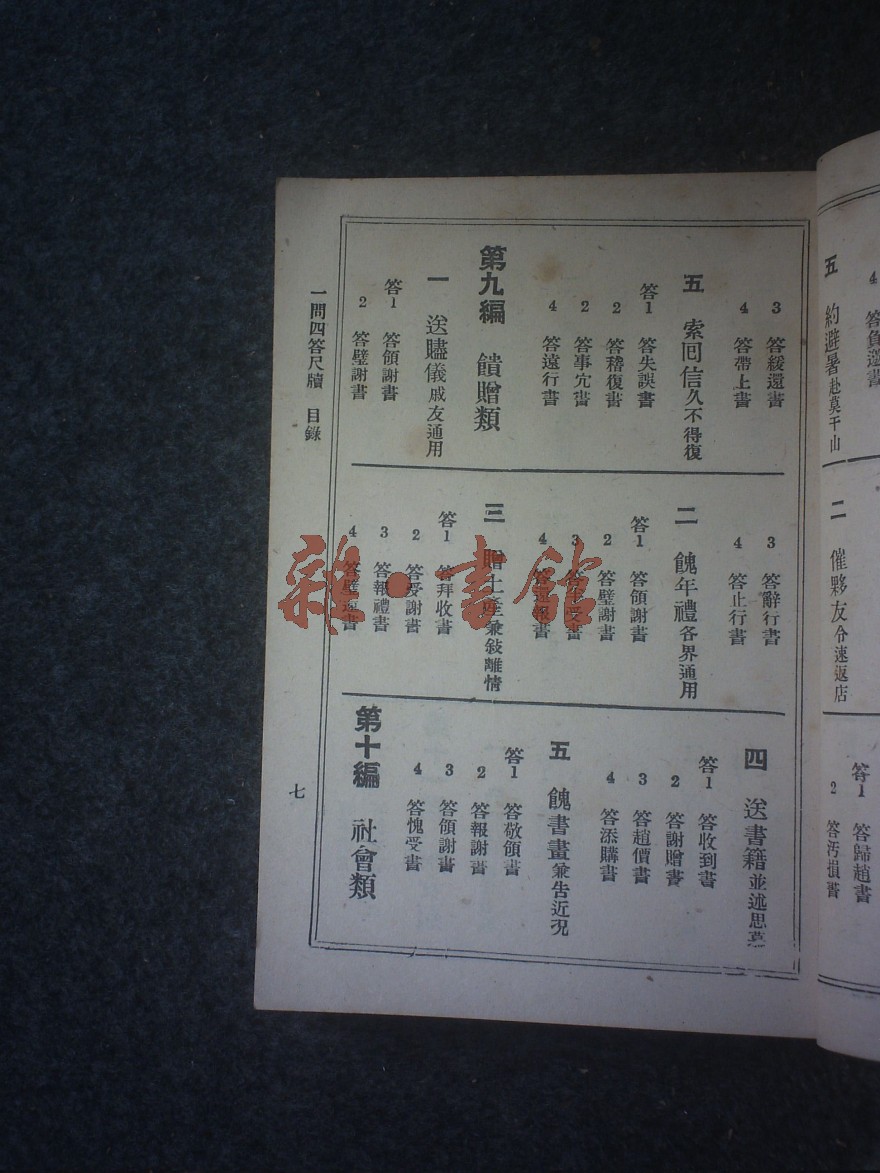 4 答負逆書
五 約避暑赴莫干山
二 催夥友令速返店
答1 答歸趙書
2 答汚損書
3 答緩還書
4 答帶上書
五 索回信久不得復
答1 答失誤書
2 答稽復書
2 答事宂書
4 答遠行書
第九編 饋贈類
一 送贐儀戚友通用
答1 答領謝書
2 答璧謝書
3 答辭行書
4 答止行書
二 餽年禮各界通用
答1 答領謝書
2 答璧謝書
3 答 受書
4 答 報書
三 贈土產兼敍離情
答1 答拜收書
2 答受謝書
3 答報禮書
4 答璧還書
四 送書籍並述思慕
答1 答收到書
2 答謝贈書
3 答趙價書
4 答添購書
五 餽書畫兼告近況
答1 答敬領書
2 答報謝書
3 答領謝書
4 答愧受書
第十編 社會類
一問四答尺牘 目錄
七
雜·書館